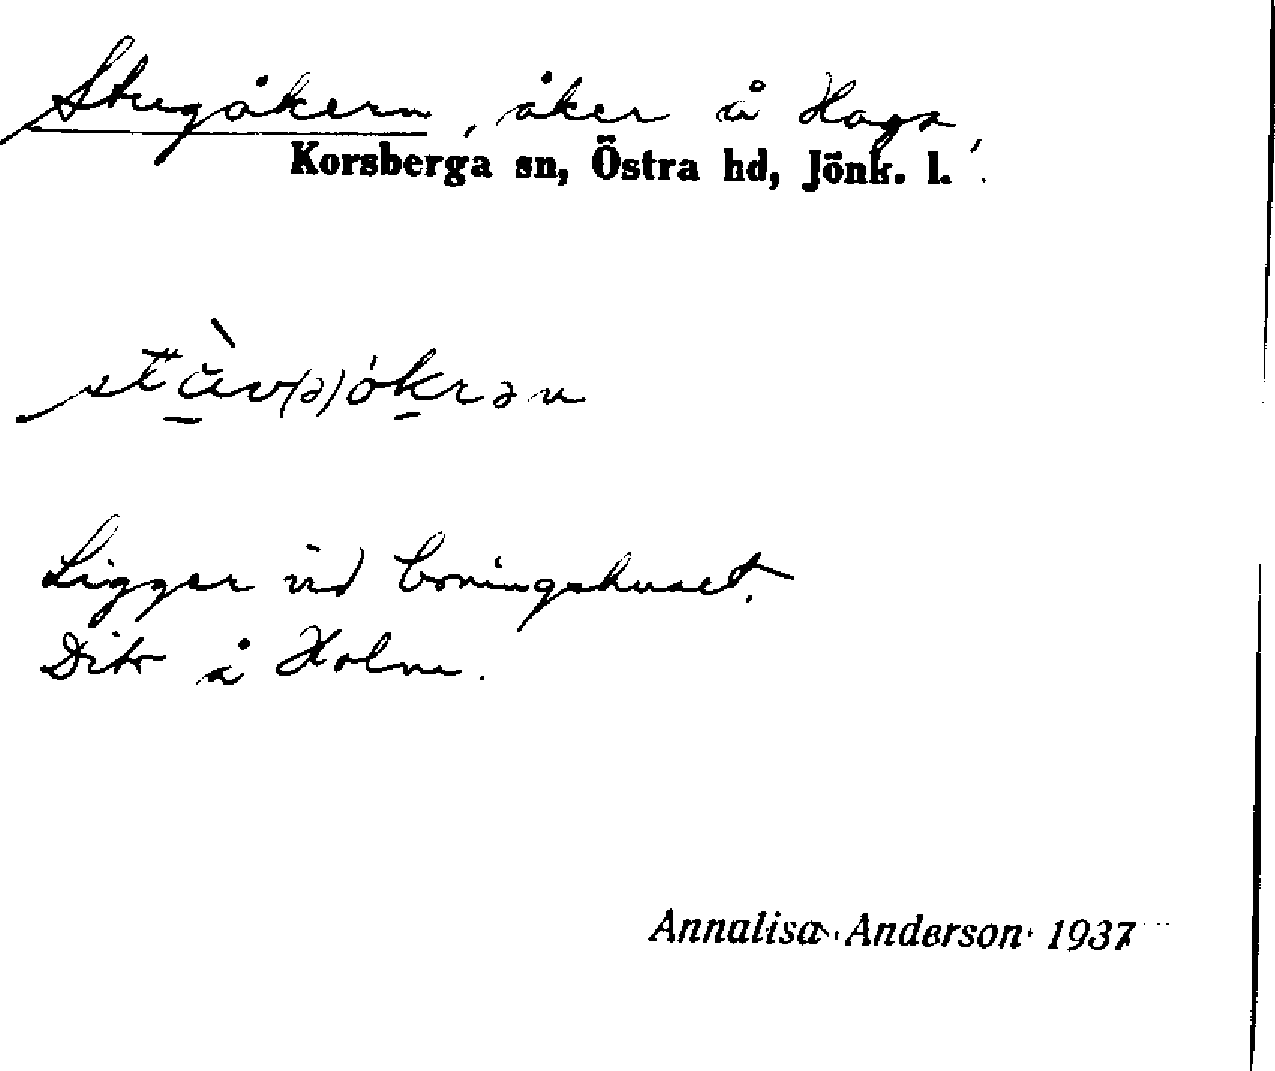 Stugåkern, åker å Haga,
Korsberga sn, Östra hd, Jönk. l.
stàv(ə)ókrən
Ligger vid boningshuset.
Dito å Holme.
Annalisa Anderson 1937